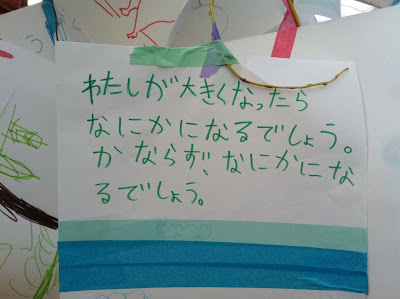 わたしが大きくなったら
なにかになるでしょう。
かならず、なにかにな
るでしょう。